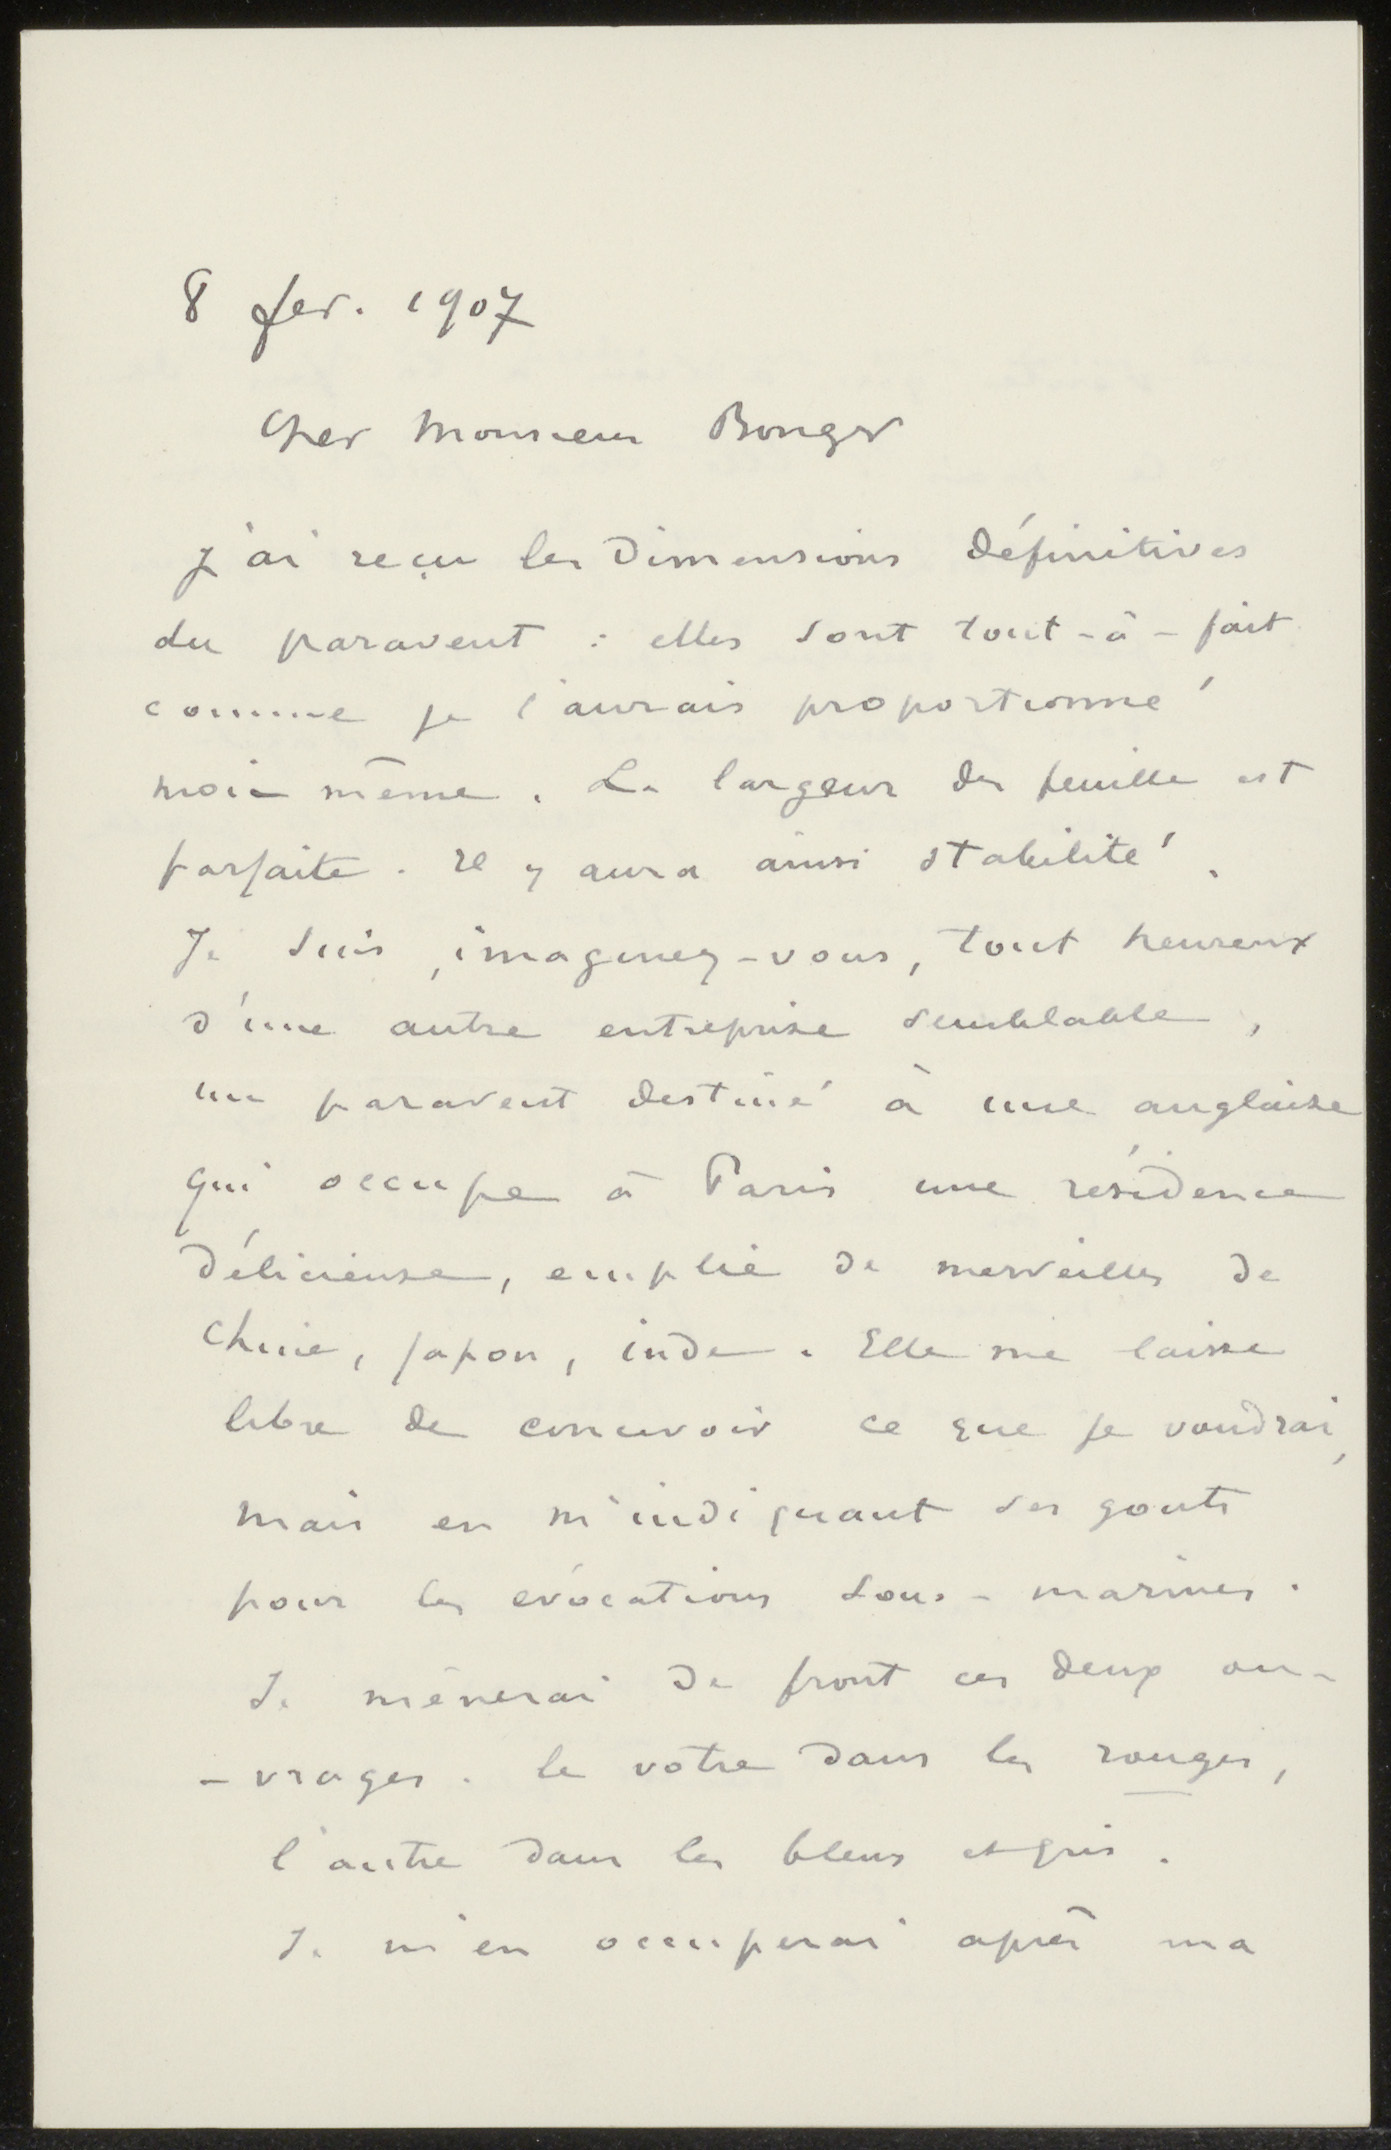 8 fev. 1907
Cher Monsieur Bonger
J'ai reçu les dimensions définitives
du paravent : elles sont tout-à-fait
comme je l'aurais proportionné
moi-même. La largeur des feuille est
parfaite. Il y aura ainsi stabilité.
Je suis, imaginez-vous, tout heureux
d'une autre entreprise semblable,
un paravent destiné à une anglaise
qui occupe à Paris une résidence
délicieuse, emplie de merveilles de
Chine, Japon, inde. Elle me laisse
libre de concevoir ce que je voudrai,
mais en m'indiquant ses gouts
pour les évocations sous-marines.
Je mènerai de front ces deux ou-
-vrages. le votre dans les rouges,
l'autre dans les bleus et gris.
Je m'en occuperai après ma